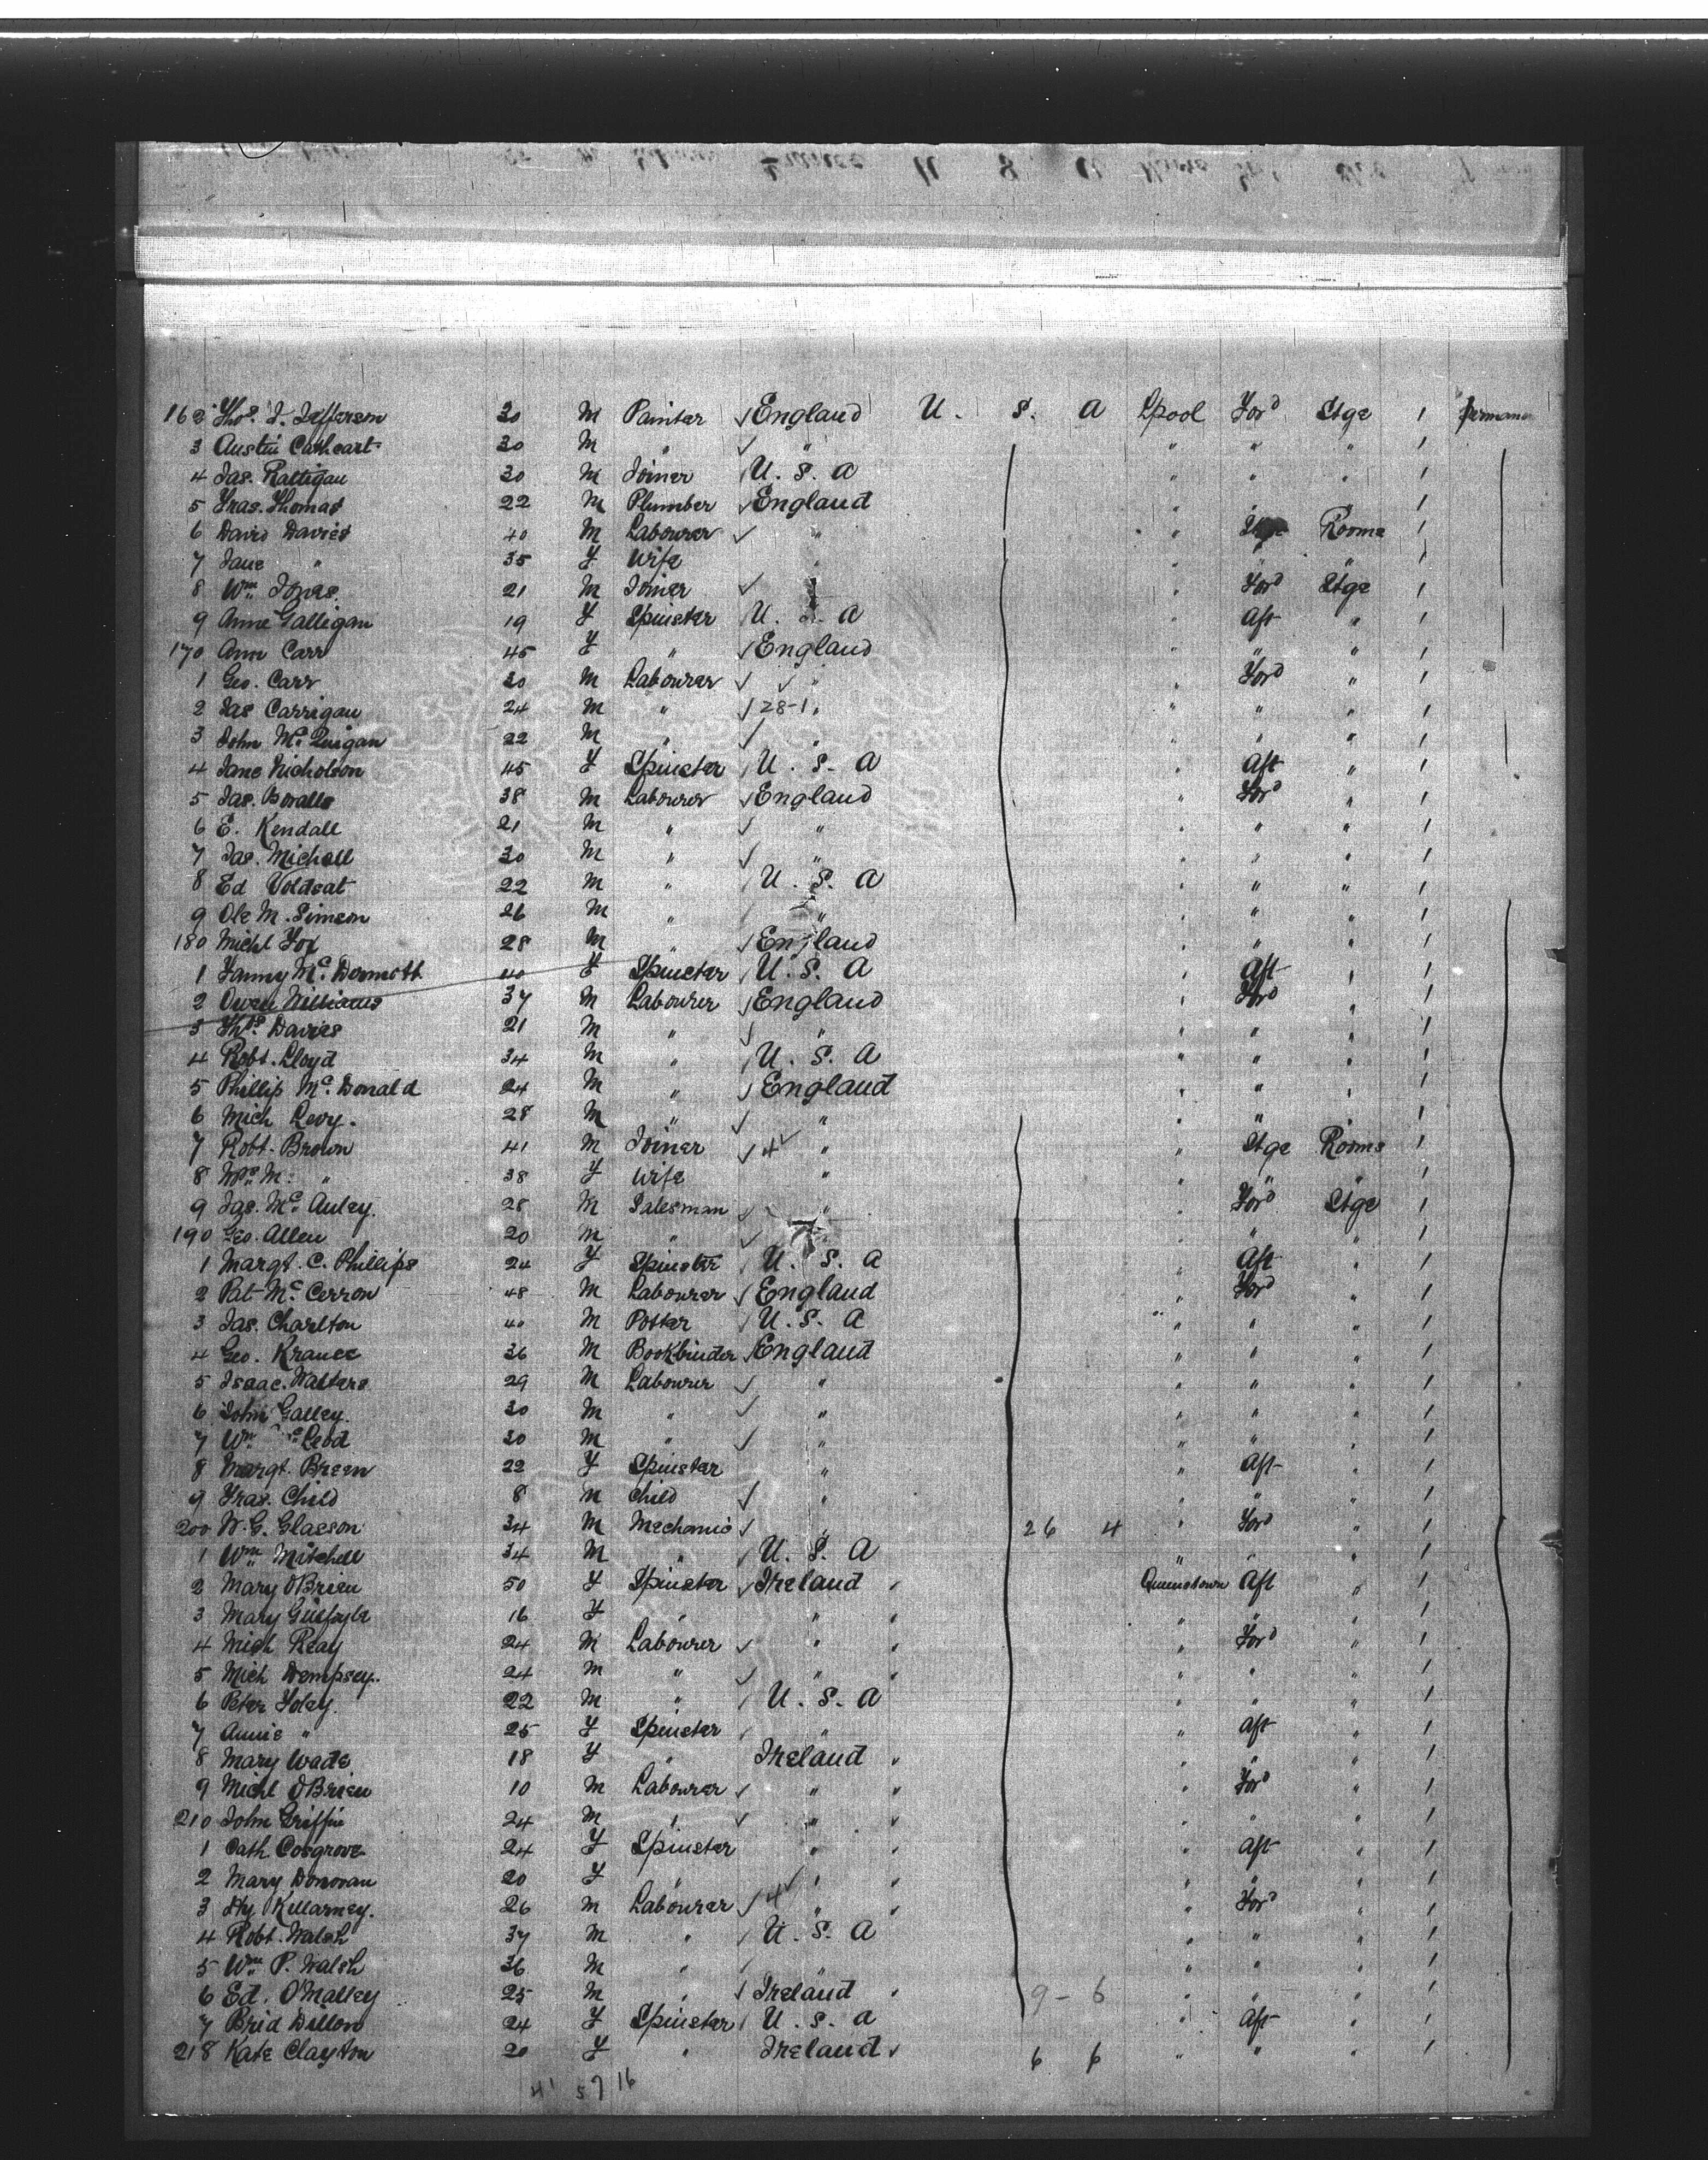 162 Thos. J. Jefferson 30 M Painter √ England U. S. A Lpool For'd Stge 1
3 Austin Cathcart 30 M " √ " " " " 1
4 Jas. Rattigan 30 M Joiner √ U. S. A " " " 1
5 Fras. Thomas 22 M Plumber √ England " " " 1
6 David Davies 40 M Labourer √ " " Stge Rooms 1
7 Jane " 35 F Wife " " " " 1
8 Wm. Jones 21 M Joiner √ " For'd Stge 1
9 Anne Galligan 19 F Spinster √ U. S. A " Aft " 1
170 Ann Carr 45 F " √ England " " " 1
1 Geo. Carr 30 M Labourer √ √ " " For'd " 1
2 Jas Carrigan 24 M " √ 28-1 " " " " 1
3 John Mc. Quigan 22 M " √ " " " " 1
4 Jane Nicholson 45 F Spinster √ U. S. A " Aft " 1
5 Jas. 38 M Labourer √ England " For'd " 1
6 E. Kendall 21 M " √ " " " " 1
7 Jas. Michell 30 M " √ " " " " 1
8 Ed Voldsat 22 M " / U. S. A " " " 1
9 Ole M. Simson 26 M " / " " " " 1
180 Michl Fox 28 M " √ England " " " 1
1 Fanny Mc. Dermott 40 F Spinster √ U. S. A " Aft " 1
2 Owen Williams 37 M Labourer √ England " For'd " 1
3 Thos. Davies 21 M " √ " " " " 1
4 Robt. Lloyd 34 M " / U. S. A " " " 1
5 Phillip Mc. Donald 24 M " √ England " " " 1
6 Mich Levy. 28 M " √ " " " " 1
7 Robt. Brown 41 M Joiner √ 4 √ " " Stge Rooms 1
8 Mrs. M. " 38 F Wife " " " " 1
9 Jas. Mc. Auley. 28 M Salesman √ " " For'd Stge 1
190 Geo. Allen 20 M " √ " " " 1
1 Margt. C. Phillips 24 F Spinster / U. S. A " Aft " 1
2 Pat Mc. Cerron 48 M Labourer √ England " For'd " 1
3 Jas. Charlton 40 M Potter / U. S. A " " " 1
4 Geo. Krauss 36 M Bookbinder √ England " " " 1
5 Isaac. Walters 29 M Labourer √ " " " " 1
6 John Galley. 30 M " √ " " " " 1
7 Wm. Mc. Leod 30 M " √ " " " " 1
8 Margt. Breen 22 F Spinster " " Aft " 1
9 Fras. Child 8 M Child √ " " " " 1
200 W. G. Glasson 34 M Mechanic √ " 26 4 " For'd " 1
1 Wm. Mitchell 34 M " / U. S. A " " " 1
2 Mary O'Brien 50 F Spinster √ Ireland " Queenstown Aft " 1
3 Mary 16 F " " " " " " 1
4 Mich Reay 24 M Labourer √ " " " For'd " 1
5 Mich Dempsey. 24 M " √ " " " " " 1
6 Peter Foley. 22 M " / U. S. A " " " 1
7 Annie " 25 F Spinster / " " Aft " 1
8 Mary Wade 18 F " Ireland " " " " 1
9 Michl O'Brien 10 M Labourer √ " " " For'd " 1
210 John Griffin 24 M " √ " " " " " 1
1 Cath. Cosgrove 24 F Spinster " " " Aft " 1
2 Mary Donovan 20 F " " " " " " 1
3 Hy Killarney. 26 M Labourer √ 4 √ " " " For'd " 1
4 Robt. Walsh 37 M " / U. S. A " " " 1
5 Wm. P. Walsh 36 M " / " " " " 1
6 Ed. O'Malley 25 M " √ Ireland " 9 - 6 " " " 1
7 Brid Dillon 24 F Spinster / U. S. A " Aft " 1
218 Kate Clayton 20 F " Ireland √ 6 6 " " " 1
41 57 16